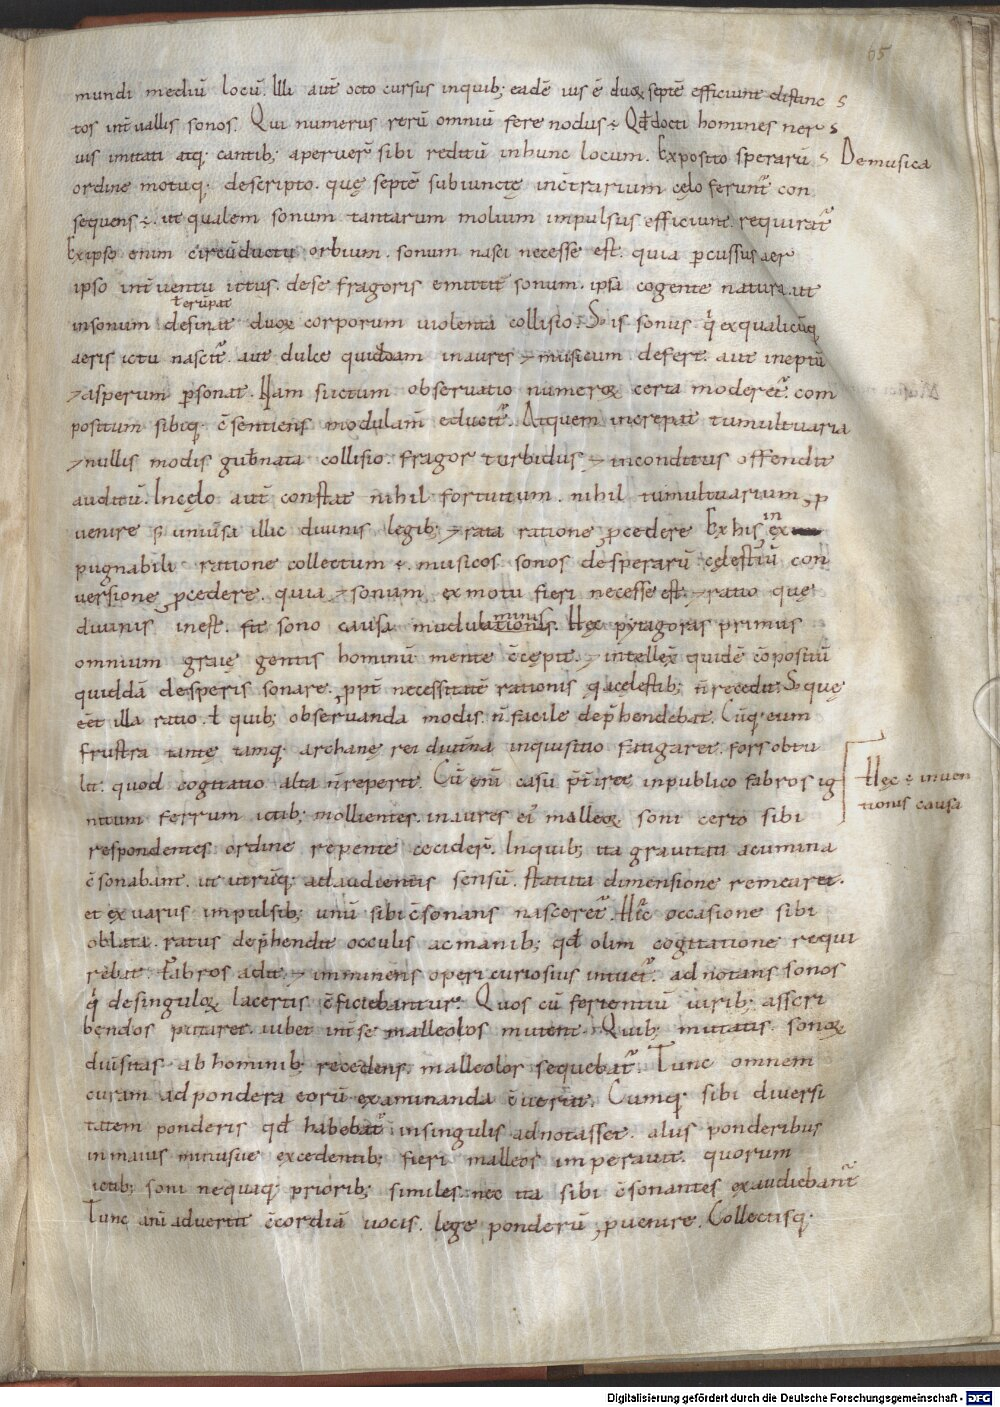 65
mundi mediū locū. Illi aūt octo cursus inquib; eadē uis ē duoꝝ septē efficiunt distinc
tos int̄uallis sonos. Qui numerus rerū omniū fere nodus ē. Qđ docti homines ner
uis imitati atq; cantib; aperuer̄ sibi reditū inhunc locum. Exposito sperarū
De musica
ordine motuq; descripto. quę septē subiunctę inct̄rarium cęlo ferunt̄ con
sequens ē. ut qualem sonum tantarum molium impulsus efficiunt requirat̄
Exipso enim circūductu orbium. sonum nasci necesse est. quia ꝑcussus aer
ipso int̄uentu ictus. dese fragoris emittit sonum. ipsa cogente natura. ut
t̄erūpat
insonum desinat duoꝝ corporum uiolenta collisio. Sꝫ is sonus q̄ exqualicūq;
aeris ictu nascit̄. aut dulce quiddam inaures & musicum defert aut ineptū
& asperum ꝑsonat. Nam si ictum obseruatio numeroꝝ certa moderet̄. com
positum sibiq; c̄sentiens modulam̄ educit̄. Atquem increpat tumultuaria
& nullis modis gub̄nata collisio. fragor turbidus & inconditus offendit
auditū. Incęlo aūt constat nihil fortuitum. nihil tumultuarium ꝓ
uenire sꝫ uniūsa illic diuinis legib; & rata ratione ꝓcedere Ex his in ex
pugnabili ratione collectum ē. musicos sonos desperarū cęlestiū con
uersione ꝓcedere. quia & sonum exmotu fieri necesse est. & ratio quę
diuinis inest. fit sono causa modulaminis. Hęc pytagoras primus
omnium graię gentis hominū mente c̄cepit. & intellex̄ quidē c̄positū
quiddā desperis sonare. ꝓpt̄ necessitatē rationis q̄ acelestib; n̄ recedit. Sꝫ quę
eēt illa ratio. ł quib; obseruanda modis. n̄ facile dep̄hendebat. Cūq; eum
frustra tantę tamq; archanę rei diutina inquisitio fatigaret. fors obtu
lit. quod cogitatio alta n̄ reperit. Cū eni casu p̄t̄iret inpublico fabros ig
Hęc ē inuen
tionis causa
nitum ferrum ictib; mollientes. inaures ei malleoꝝ soni certo sibi
respondentes ordine repente cecider̄. Inquib; ita grauitati acumina
c̄sonabant. ut utrūq; ad audientis sensū. statuta dimensione remearet.
et ex uariis impulsib; unū sibi c̄sonans nasceret̄. Hic̄ occasione sibi
oblata. ratus dep̄hendit occulis ac manib; qđ olim cogitatione requi
rebat. fabros adit. & imminens operi curiosius intuet̄. adnotans sonos
q̄ desinguloꝝ lacertis c̄ficiebantur. Quos cū ferientiū uirib; asscri
bendos putaret. iubet int̄ se malleolos mutent. Quib; mutatis. sonoꝝ
diuisitas ab hominib; recedens. malleolos sequebat̄. Tunc omnem
curam ad pondera eorū examinanda c̄uertit. Cumq; sibi diuersi
tatem ponderis qđ habebat̄ insingulis adnotasset. aliis ponderibus
inmaius minusue excedentib; fieri malleos imperauit. quorum
ictib; soni nequaq; priorib; similes. nec ita sibi c̄sonantes exaudiebant̄
Tunc ani aduertit c̄cordiā uocis. lege ponderū ꝓuenire. Collectisq;
Digitalisierung gefördert durch die Deutsche Forschungsgemeinschaft - DFG